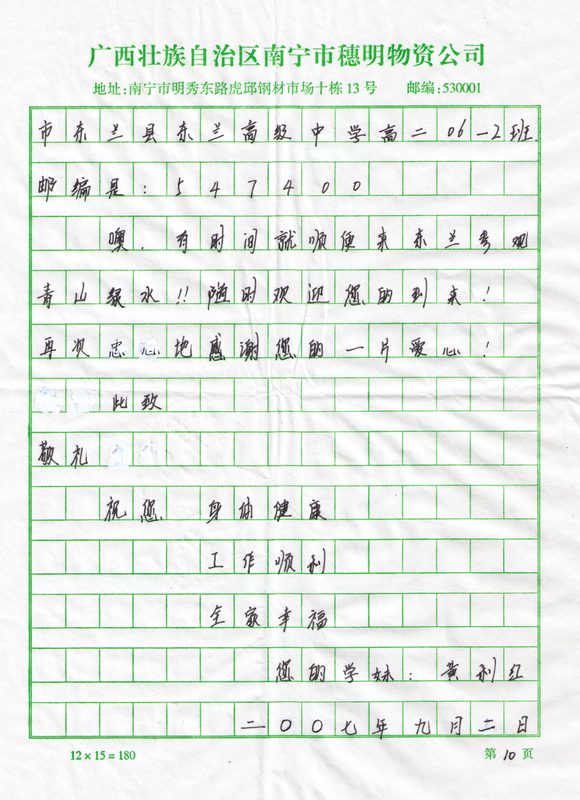 广西壮族自治区南宁市穗明物资公司
地址:南宁市明秀东路虎邱钢材市场十栋13号 邮编:530001
市东兰县东兰高级中学高二06—2班.
邮编是：547400
噢．有时间就顺便来东兰参观
青山绿水!!随时欢迎您的到来！
再次忠心地感谢您的一片爱心！
此致
敬礼
祝您 身体健康
工作顺利
全家幸福
您的学妹：黄利红
二00七年九月二日
12×15=180 第10页